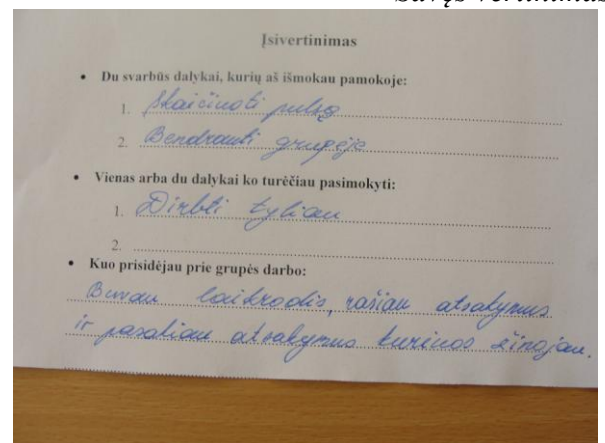 Įsivertinimas
• Du svarbūs dalykai, kurių aš išmokau pamokoje:
1. Skaičiuoti pulsą
2. Bendrauti grupėje
• Vienas arba du dalykai ko turėčiau pasimokyti:
1. Dirbti tyliau
2.
• Kuo prisidėjau prie grupės darbo:
Buvau laikrodis, rašiau atsakymus
ir pasakiau atsakymus kuriuos žinojau.